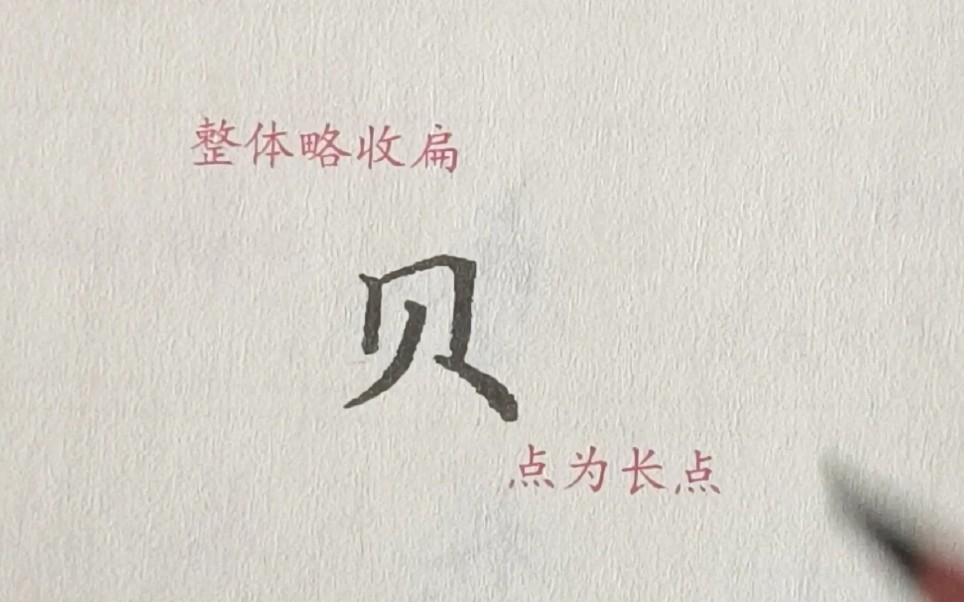 整体略收扁
贝
点为长点